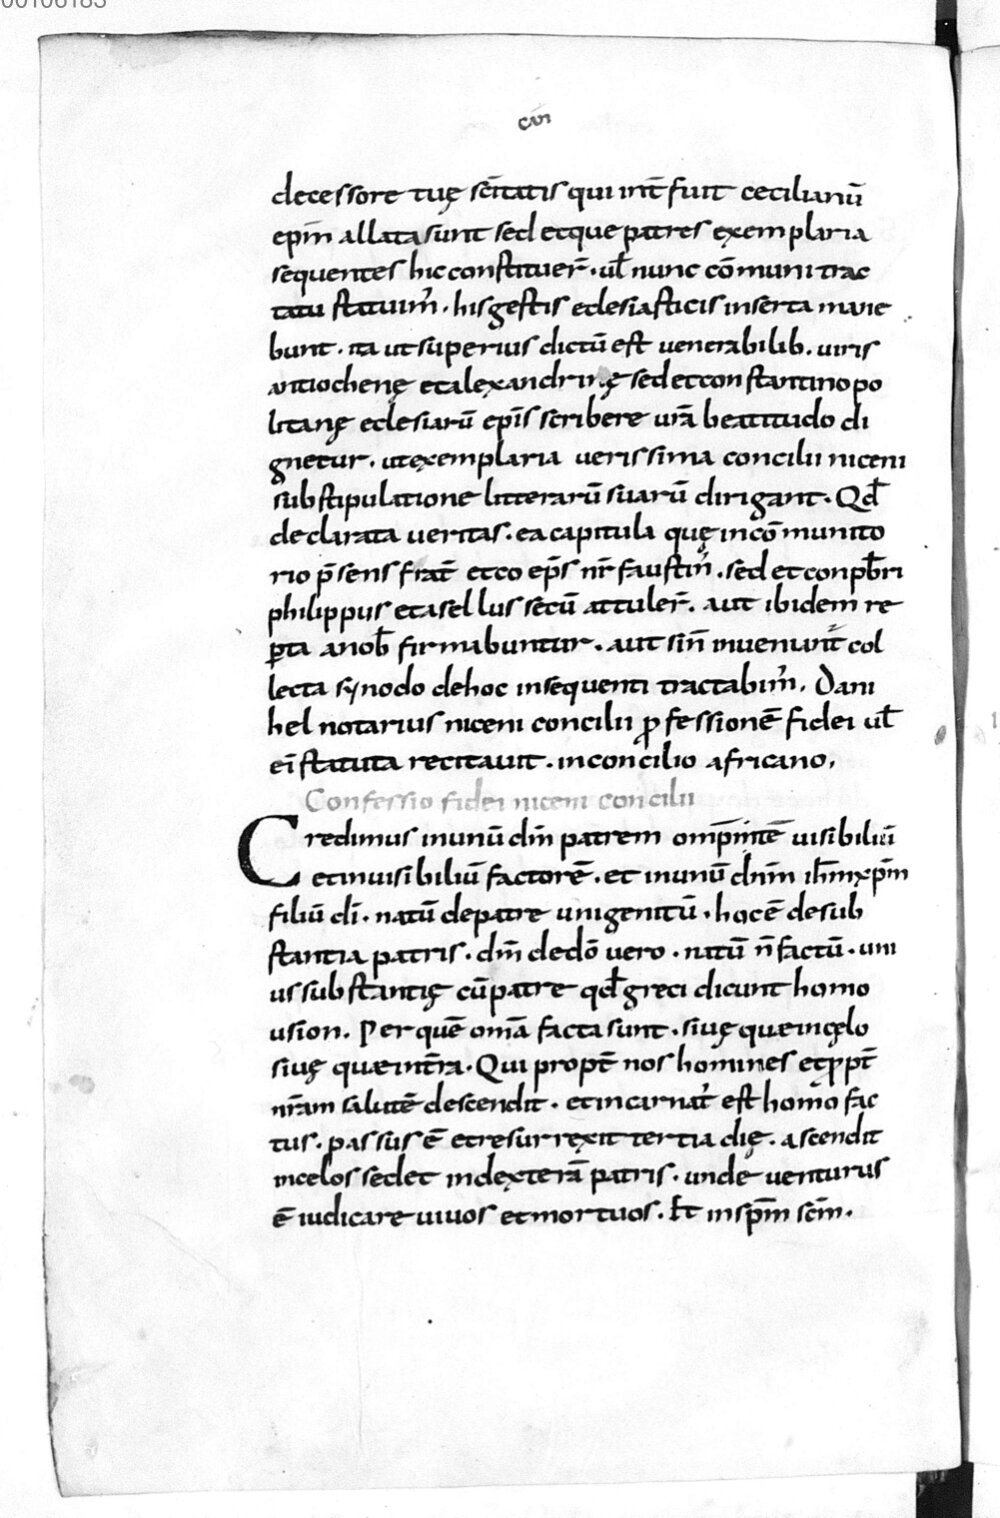 00106183
cuı
decessore tuę sc̄itatis qui int̄ fuit cecilianū
ep̄m allata sunt sed etque patres exemplaria
sequentes hic constituer̄. ul̄ nunc cōmuni trac
tatu statuim̓. his gestis eclesiasticis inserta mane
bunt. ita ut superius dictū est uenerabilib. uiris
antiochenę et alexandrinę sed et constantinopo
litanę eclesiarū ep̄is scribere ur̄a beatitudo di
gnetur. ut exemplaria uerissima concilii niceni
sub stipulatione litterarū suarū dirigant. Qd̄
declarata ueritas. ea capitula quę in cōmunito
rio p̄sens frat̄ et co ep̄s nr̄ faustin̓. sed et conpb̄ri
philippus et asellus secū attuler̄. aut ibidem re
ꝑta a nob̄ firmabuntur. aut si n̄ inuenirint̄ col
lecta synodo de hoc in sequenti tractabim̓. Dani
hel notarius niceni concilii ꝓfessionē fidei ul̄
ei̅ statuta recitauit. in concilio africano,
Confessio fidei niceni concilii
Credimus in unū dm̄ patrem omp̄intē uisibiliū
et inuisibiliū factorē. et in unū dnm̄ ih̄m xp̄m
filiū di̅. natū de patre unigenitū. hoc ē de sub
stantia patris. dm̄ de dō uero. natū n̄ factū. uni
us substantię cū patre qd̄ greci dicunt homo
usion. Per quē om̄a facta sunt. siuę quae in cęlo
siuę quae in tr̄a. Qui propt̄ nos homines et ꝓpt̄
nr̄am salutē descendit. et incarnat̓ est homo fac
tus. passus ē et resurrexit tertia dię. ascendit
in celos sedet in dexterā patris. unde uenturus
ē iudicare uiuos et mortuos. Et in sp̄m sc̄m.